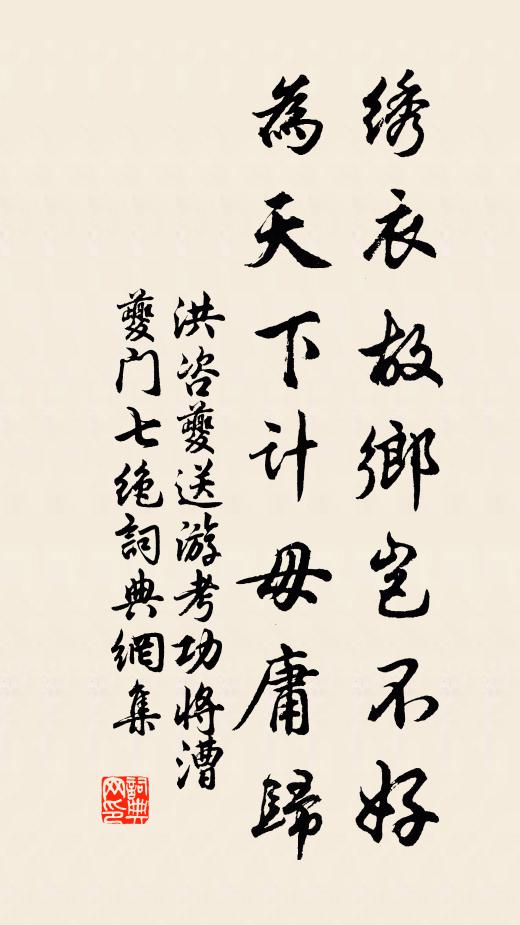 绣衣故鄉豈不好
為天下計毋庸歸
洪咨夔送游考功将漕
夔门七绝詞典網集
詞典
网印